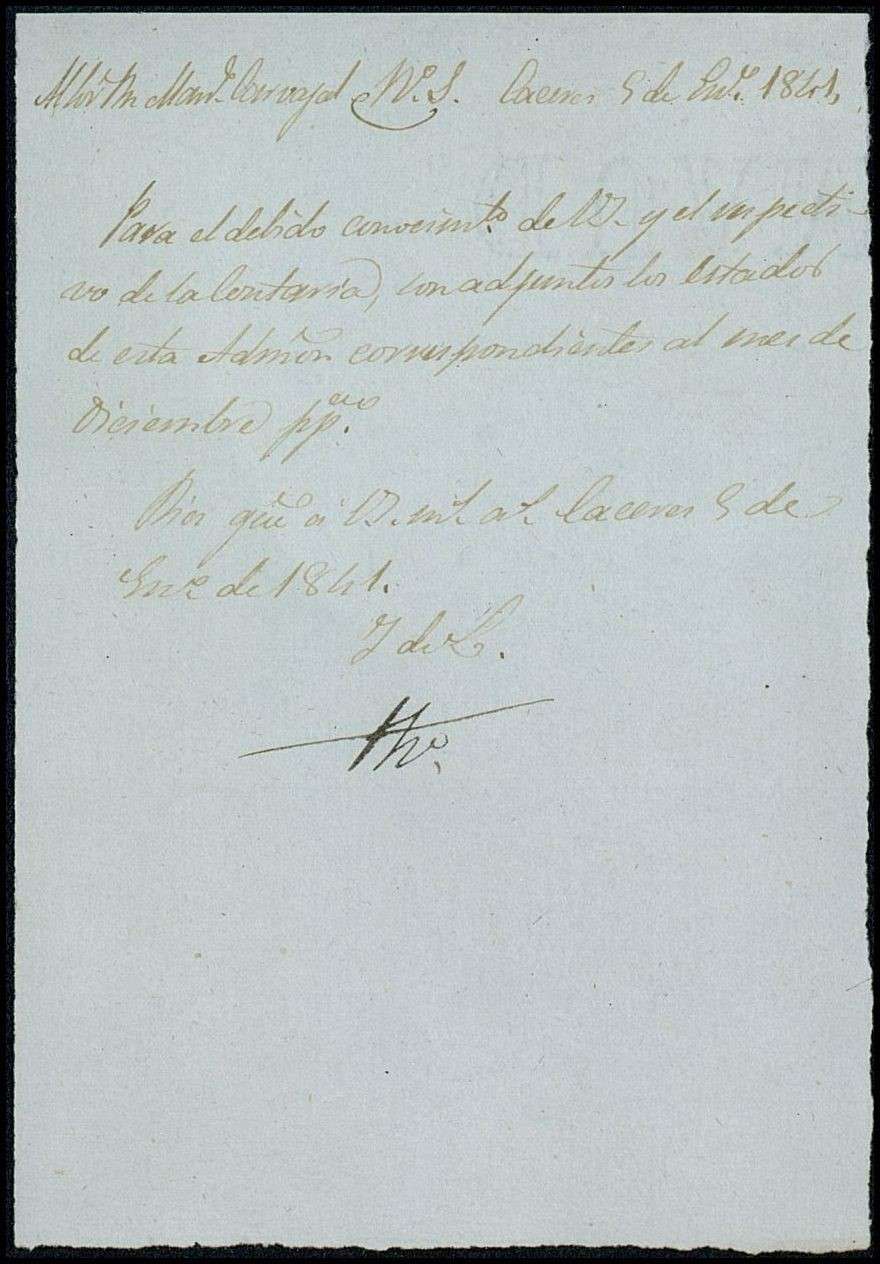 Dn Man.l Carvajal Caceres 5 de En.o 1841.
Para el debido conocim.to de V. y el respecti-
vo de la Contaria, son adjuntos los estados
de esta Admon correspondientes al mes de
Diciembre pp.do
Dios gũe á V. m.s a.s Caceres 5 de
En.o de 1841.
Y de L.